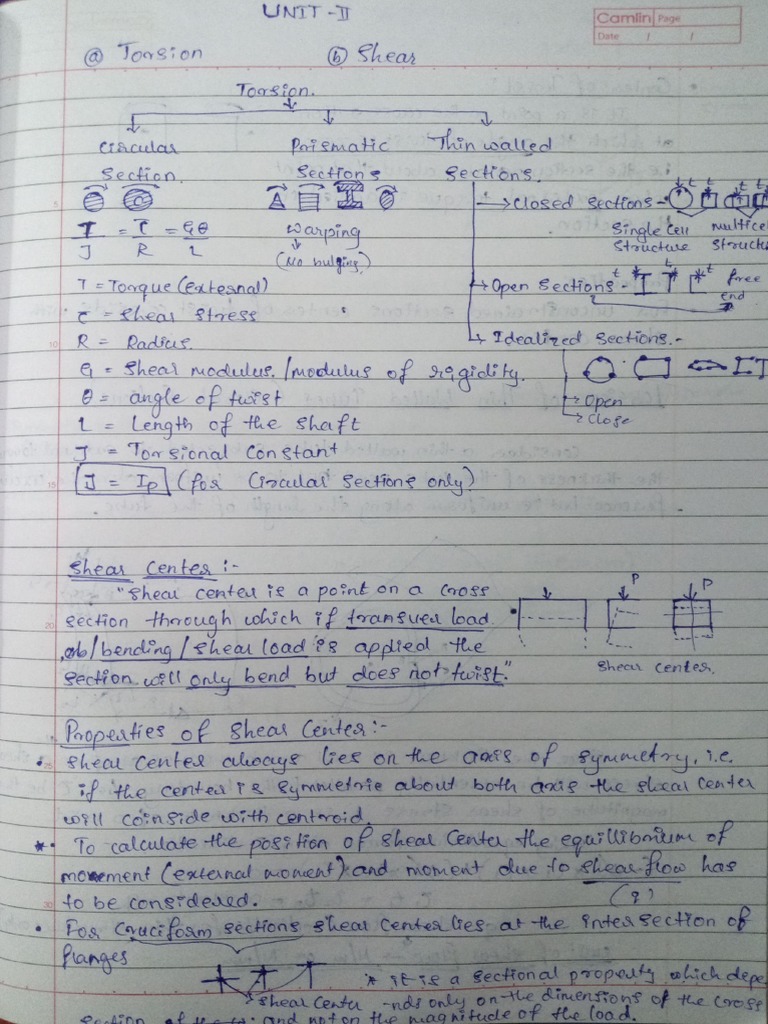 UNIT-II
Camlin Page
Date / /
ⓐ Torsion ⓑ Shear
Torsion.
Circular Prismatic Thin walled
Section. Sections Sections.
→ Closed sections - t t t t
T/J = τ/R = Gθ/L warping Single Cell multicel
(No bulging) Structure Struct
T = Torque (External) → Open Sections - t t t free
end
τ = Shear stress
R = Radius. → Idealized sections.-
G = Shear modulus. / modulus of rigidity.
θ = angle of twist → Open
L = Length of the shaft → Close
J = Torsional Constant
J = Ip (for Circular Sections only)
Shear Center :-
"Shear center is a point on a cross P P
section through which if transver load
/bending / shear load is applied the
section will only bend but does not twist." Shear center.
Properties of Shear Center:-
• Shear center always lies on the axis of symmetry, i.e.
if the center is symmetric about both axis the shear center
will coinside with centroid.
*• To calculate the position of shear Center the equillibrium of
movement (external moment) and moment due to shear flow has
to be considered. (q)
• For cruciform sections shear center lies at the intersection of
flanges
* it is a sectional property which depe
shear center -nds only on the dimensions of the cross
section and not on the magnitude of the load.